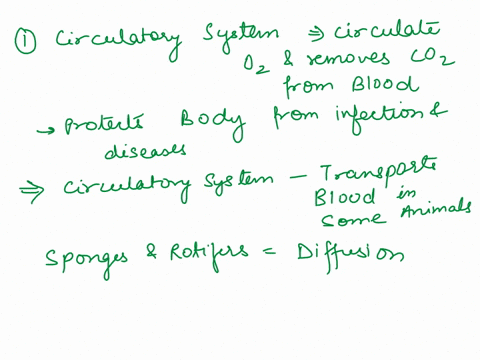 ① Circulatory System ⇒ circulate
O2 & removes CO2
from Blood
→ Protects Body from infection &
diseases
⇒ Circulatory System – Transports
Blood in
Some Animals
Sponges & Rotifers = Diffusion